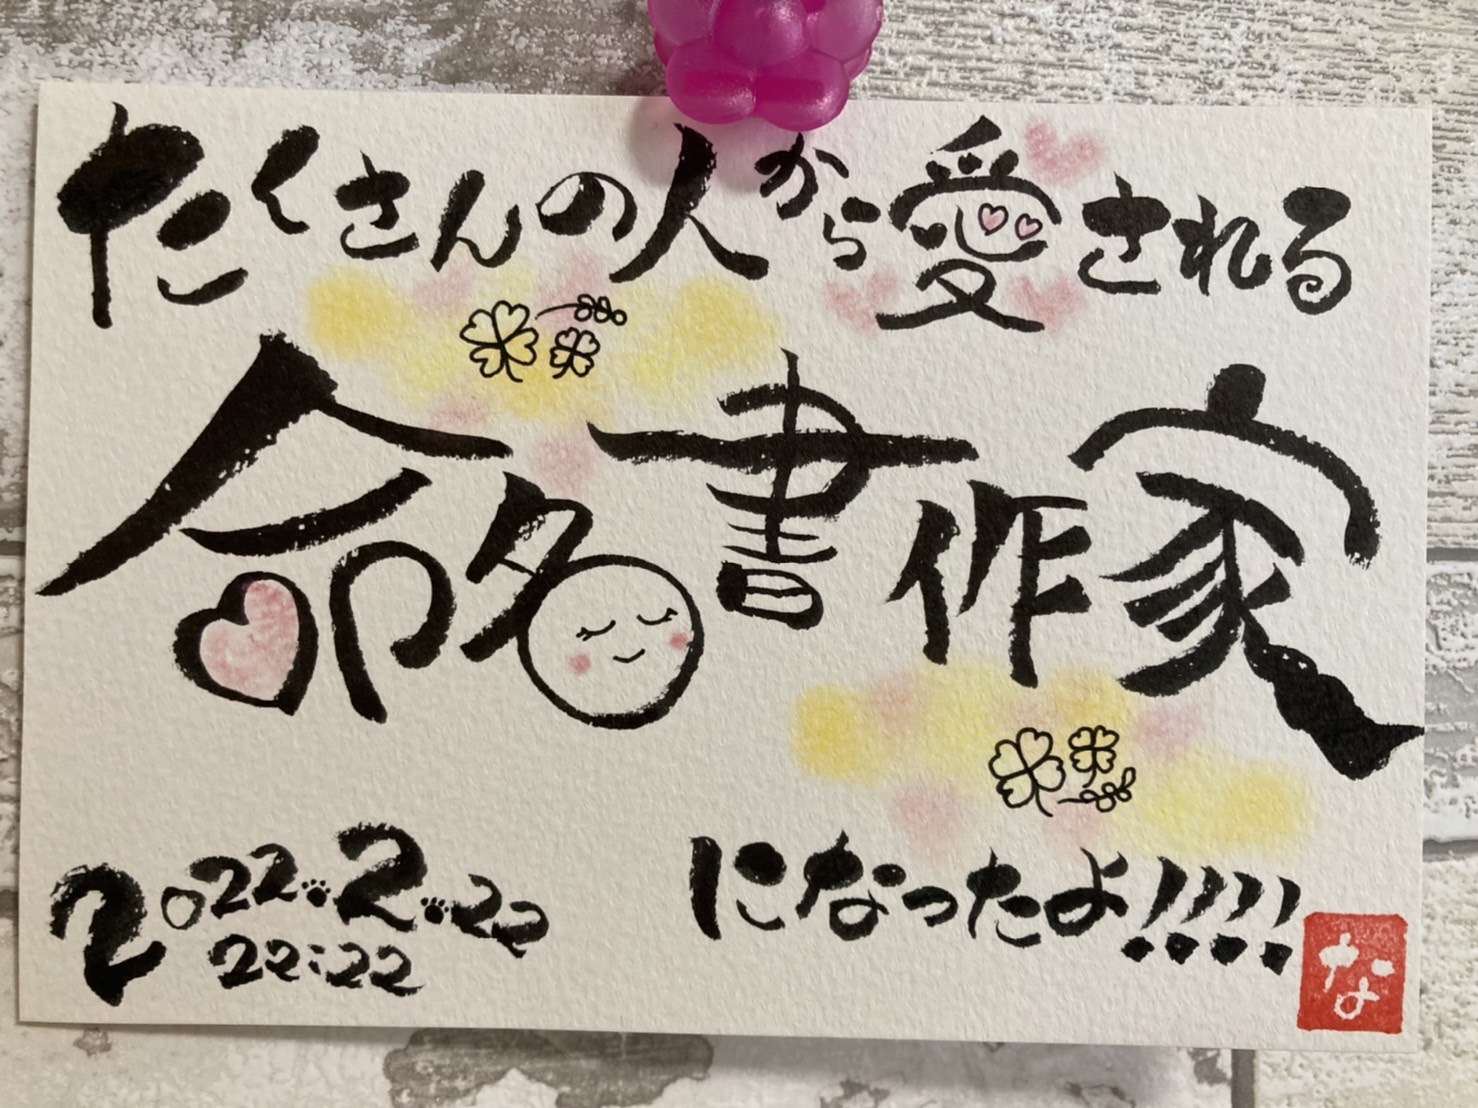 たくさんの人から愛される
命名書作家
になったよ!!!!
2022.2.22
22:22
な